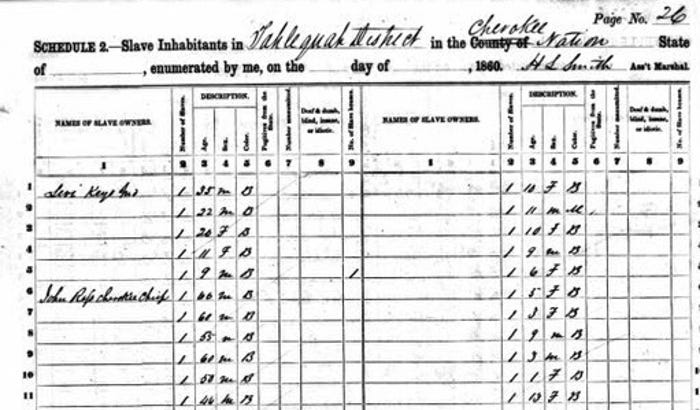 Page No. 26
SCHEDULE 2.—Slave Inhabitants in Tahlequah District in the Cherokee County of Nation State
of , enumerated by me, on the day of , 1860. H L Smith Ass't Marshal.
NAMES OF SLAVE OWNERS. Number of Slaves. DESCRIPTION. Age. Sex. Color. Fugitives from the State. Number manumitted. Deaf & dumb, blind, insane, or idiotic. No. of Slave houses. NAMES OF SLAVE OWNERS. Number of Slaves. DESCRIPTION. Age. Sex. Color. Fugitives from the State. Number manumitted. Deaf & dumb, blind, insane, or idiotic. No. of Slave houses.
1 2 3 4 5 6 7 8 9 1 2 3 4 5 6 7 8 9
1 Levi Keys 1 35 m B 1 10 F B
2 1 22 m B 1 11 m M
3 1 20 F B 1 10 F B
4 1 11 F B 1 9 m B
5 1 9 m B 1 1 6 F B
6 John Ross Cherokee Chief 1 m B 1 5 F B
7 1 60 m B 1 3 F B
8 1 55 m B 1 9 m B
9 1 60 m B 1 3 m B
10 1 50 m B 1 1 F B
11 1 m B 1 13 F B